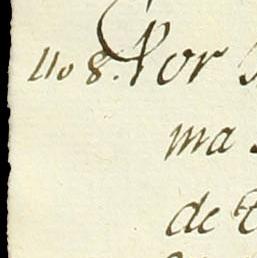 No 8. Por
ma
de